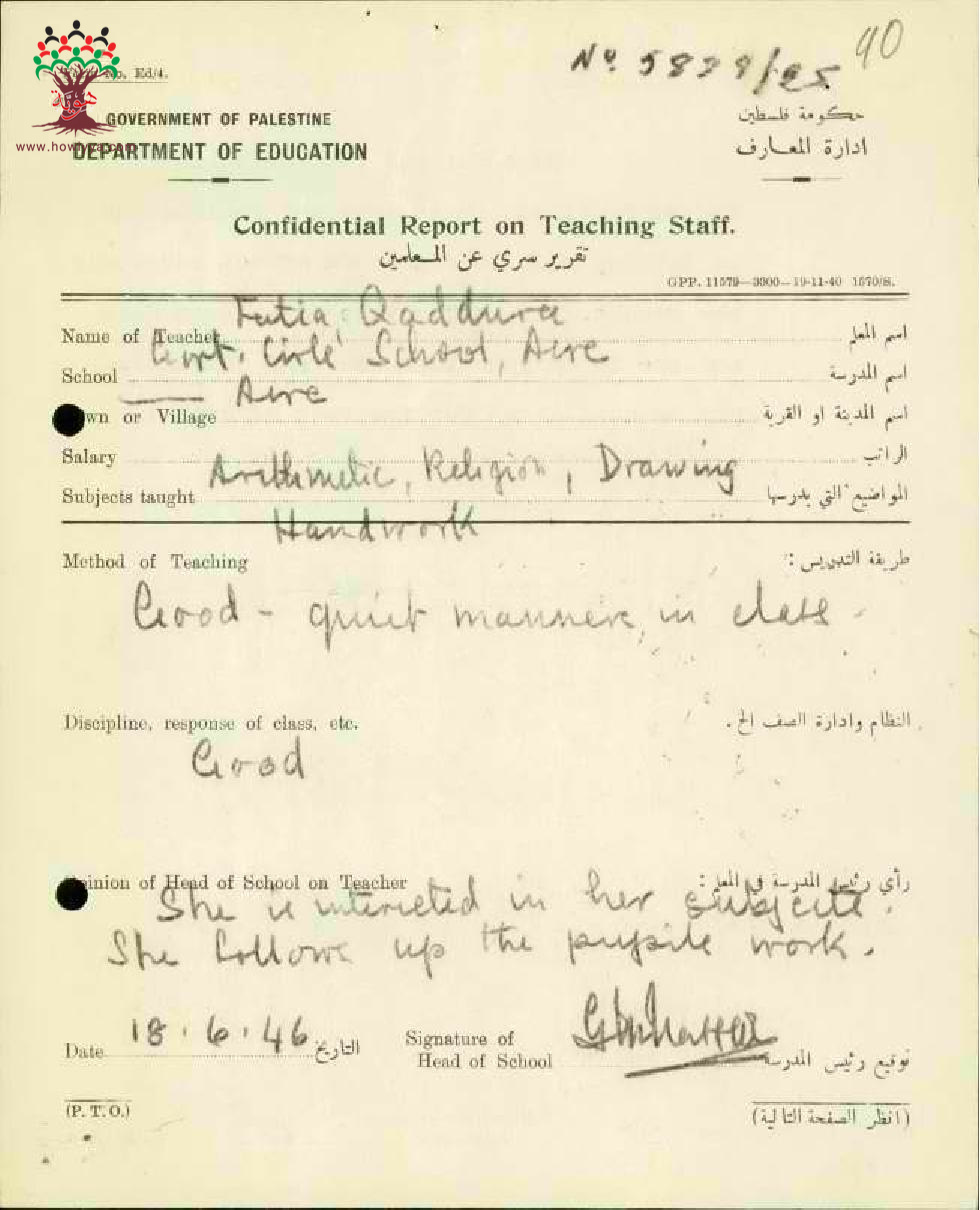 40
No. 5839/25
No. Ed/4.
هوية
www.howiyya.com
GOVERNMENT OF PALESTINE
حكومة فلسطين
DEPARTMENT OF EDUCATION
ادارة المعارف
Confidential Report on Teaching Staff.
تقرير سري عن المعلمين
GPP. 11579—3300—19-11-40 1570/S.
Name of Teacher Fatia Qaddura اسم المعلم
School Govt. Girls' School, Acre اسم المدرسة
Town or Village Acre اسم المدينة او القرية
Salary الراتب
Subjects taught Arithmetic, Religion, Drawing المواضيع التي يدرسها
Handwork
Method of Teaching طريقة التدريس :
Good - quiet manner in class.
Discipline, response of class, etc. النظام وادارة الصف الخ .
Good
Opinion of Head of School on Teacher رأي رئيس المدرسة في المعلم :
She is interested in her subjects.
She follows up the pupils work.
Date 18.6.46 التاريخ
Signature of
Head of School توقيع رئيس المدرسة
(P. T. O.) (انظر الصفحة التالية)